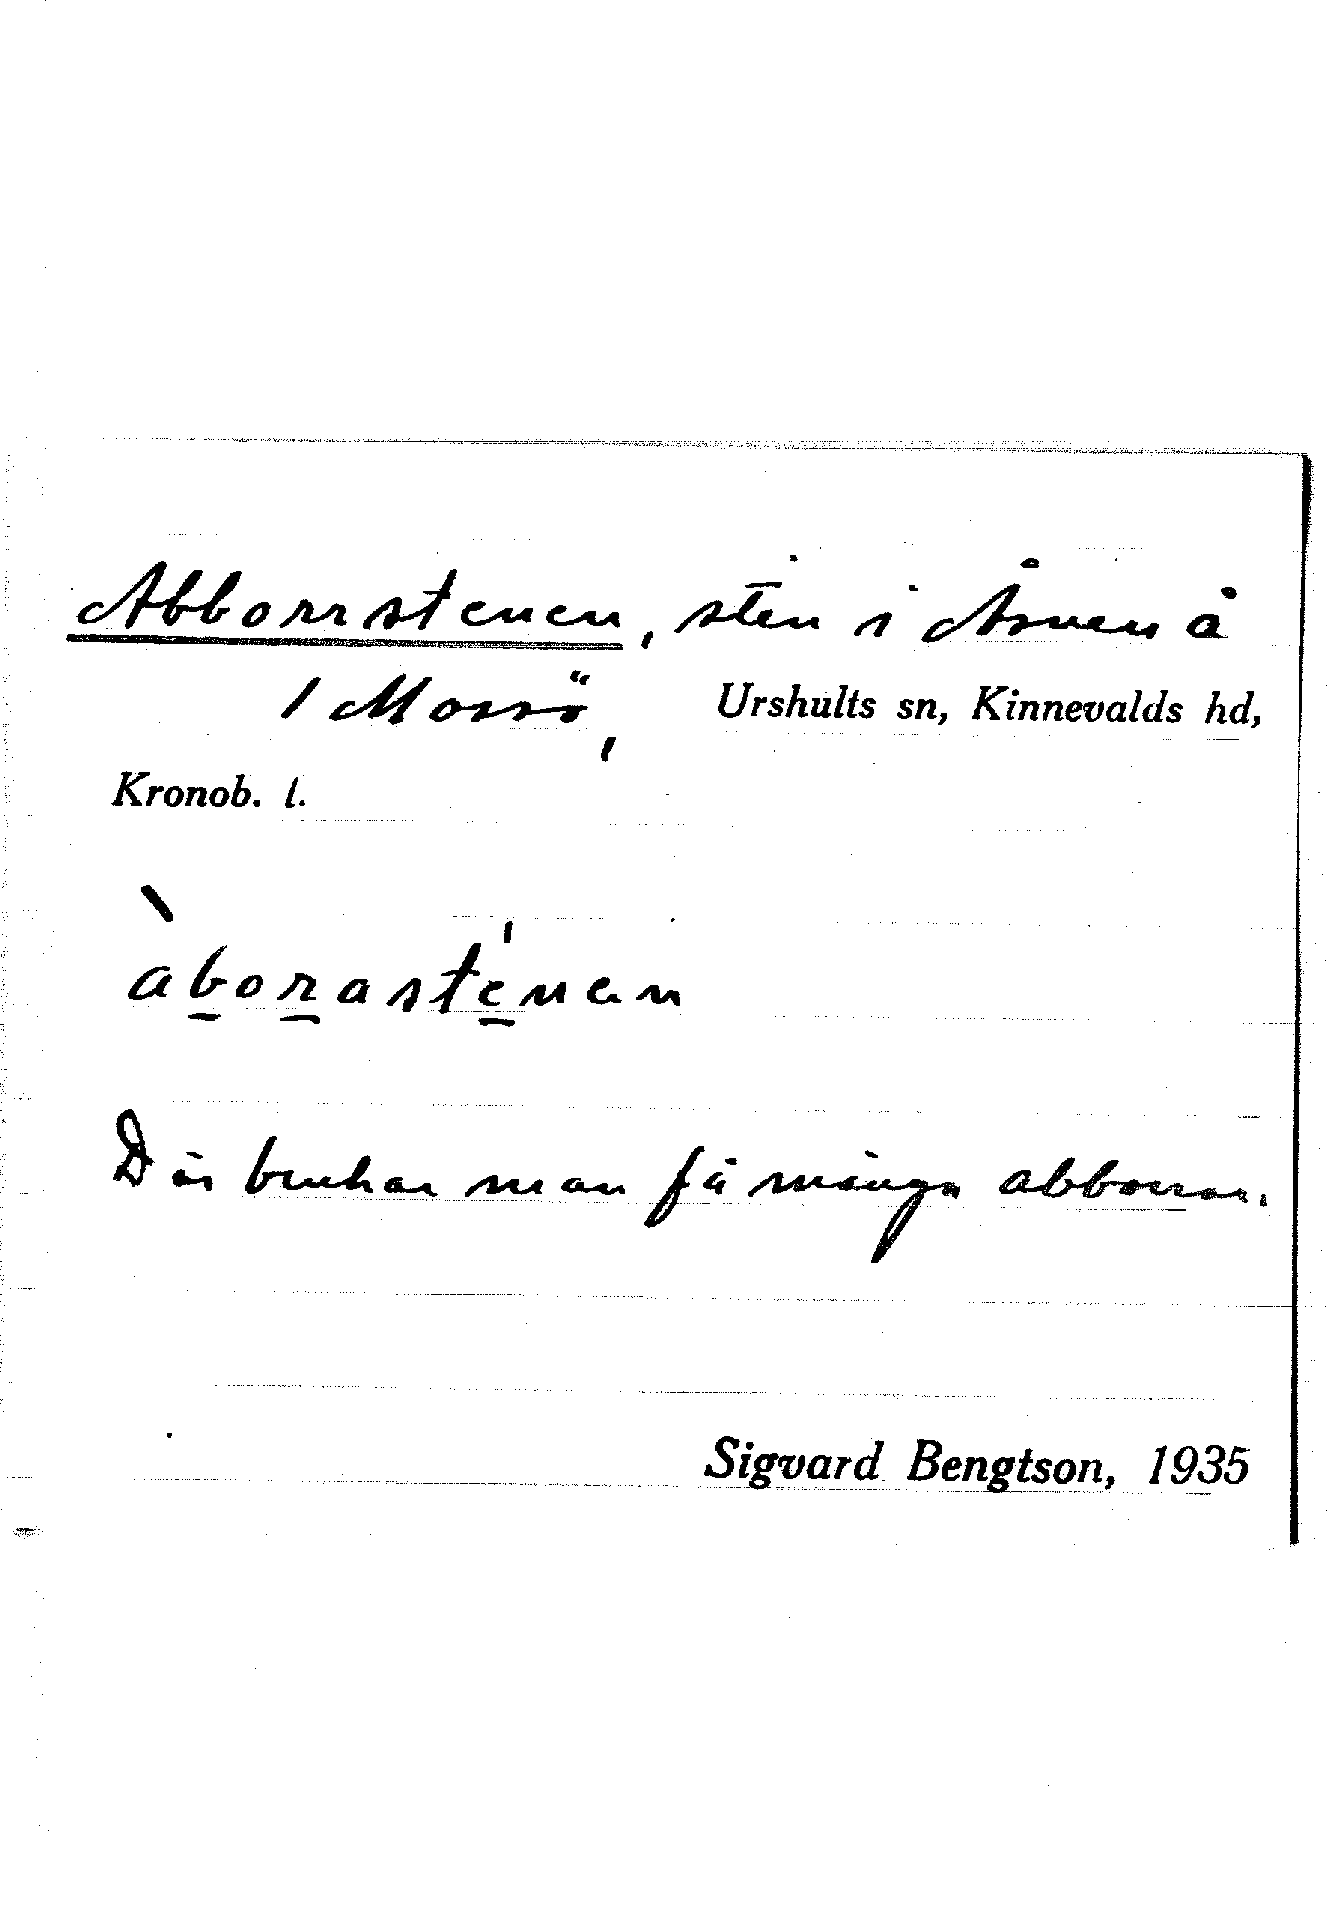 Abborrstenen, sten i Åsnen å
/ Morsö, Urshults sn, Kinnevalds hd,
Kronob. l.
àborasténen
Där brukar man få många abborrar.
Sigvard Bengtson, 1935